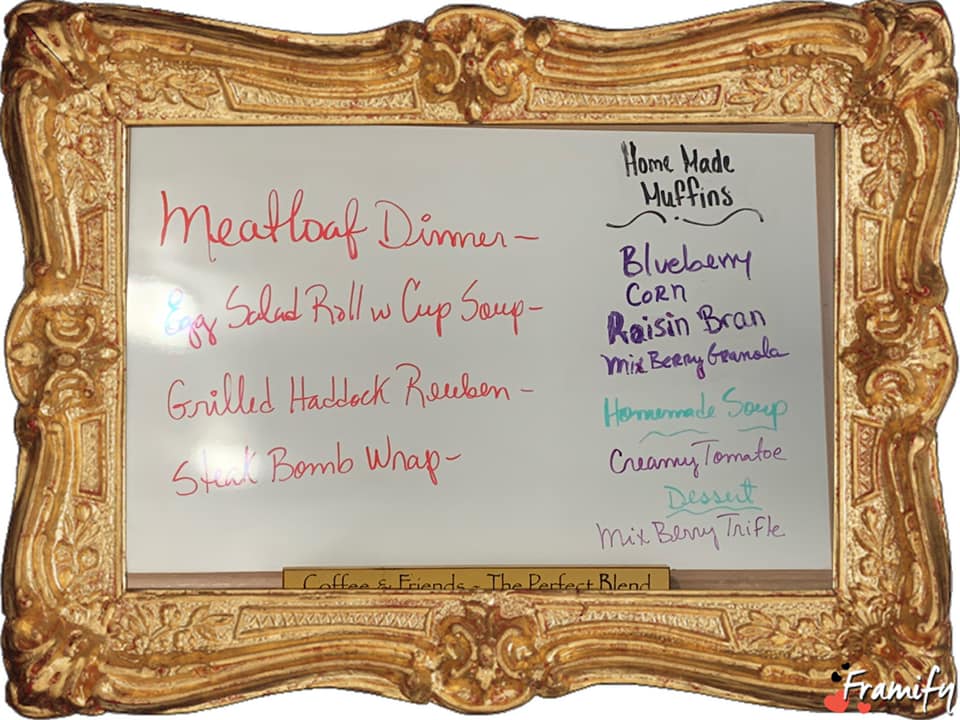 Meatloaf Dinner-
Egg Salad Roll w Cup Soup-
Grilled Haddock Reuben-
Steak Bomb Wrap-
Home Made
Muffins
Blueberry
Corn
Raisin Bran
Mix Berry Granola
Homemade Soup
Creamy Tomatoe
Dessert
Mix Berry Trifle
Coffee & Friends - The Perfect Blend
Framify